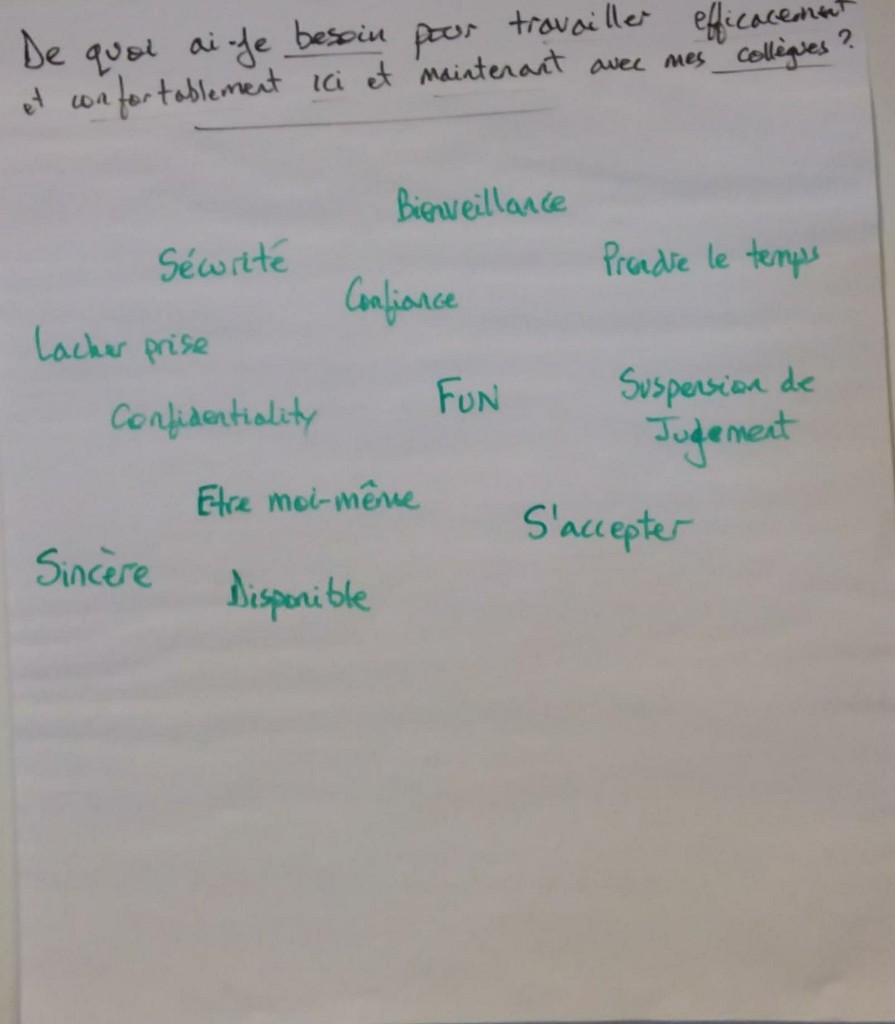 De quoi ai-je besoin pour travailler efficacement
et confortablement ici et maintenant avec mes collègues ?
Bienveillance
Sécurité
Prendre le temps
Confiance
Lacher prise
Suspension de
Jugement
FUN
Confidentiality
Etre moi-même
S'accepter
Sincère
Disponible